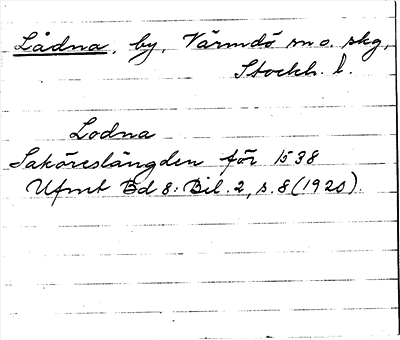 Lådna, by, Värmdö sn o. skg,
Stockh. l.
Lodna
Saköreslängden för 1538
Ufmt Bd 8: Bil. 2, s. 8 (1920).